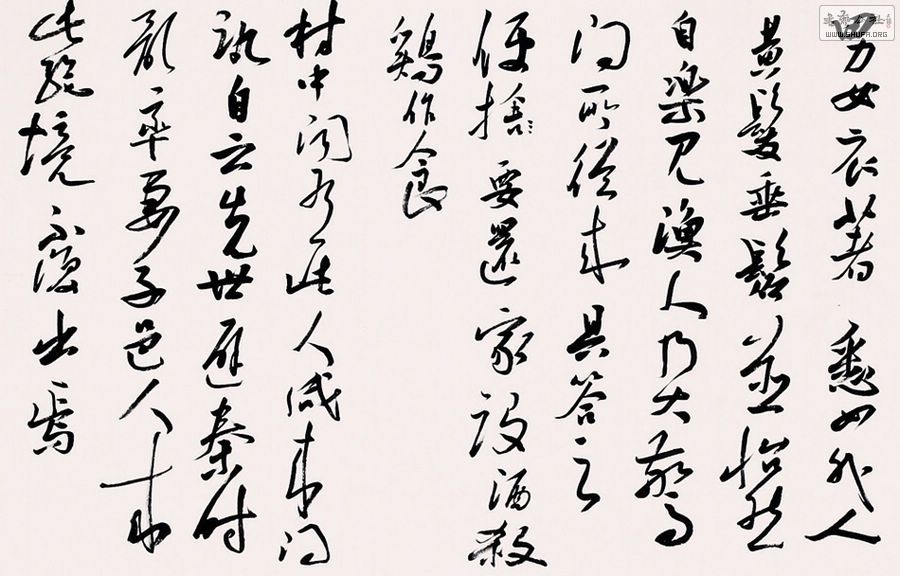 男女衣著悉如外人
黄髮垂髫並怡然
自樂見漁人乃大驚
问所從来具答之
便捨要還家設酒殺
鷄作食
村中闻有此人咸来问
訊自云先世避秦时
亂率妻子邑人来
此絶境不復出焉
WWW.SHUFA.ORG